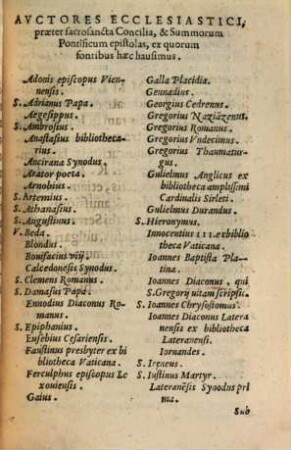 AVCTORES ECCLESIASTICI,
præter sacrosancta Concilia, & Summorum
Pontificum epistolas, ex quorum
fontibus hæc hausimus.
Adonis episcopus Vien-
nensis.
S. Adrianus Papa.
Aegesippus.
S. Ambrosius.
Anastasius bibliotheca-
rius.
Ancirana Synodus.
Arator poeta.
Arnobius.
S. Artemius.
S. Athanasius.
S. Augustinus.
V. Beda.
Blondus.
Bonifacius viij.
Calcedonesis Synodus.
S. Clemens Romanus.
S. Damasus Papa.
Ennodius Diaconus Ro-
manus.
S. Epiphanius.
Eusebius Cesariensis.
Faustinus presbyter ex bi
bliotheca Vaticana.
Ferculphus episcopus Le
xouiensis.
Gaius.
Galla Placidia.
Gennadius.
Georgius Cedrenus.
Gregorius Naziãzenus.
Gregorius Romanus.
Gregorius Vndecimus.
Gregorius Thaumatur-
gus.
Gulielmus Anglicus ex
bibliotheca amplissimi
Cardinalis Sirleti.
Gulielmus Durandus.
S. Hieronymus.
Innocentius III. ex biblio
theca Vaticana.
Ioannes Baptista Pla-
tina.
Ioannes Diaconus, qui
S. Gregorij uitam scripsit.
S. Ioannes Chrysostomus.
Ioannes Diaconus Latera
nensis ex bibliotheca
Lateranensi.
Iornandes.
S. Ireneus.
S. Iustinus Martyr.
Lateranẽsis Synodus pri
ma.
Sub